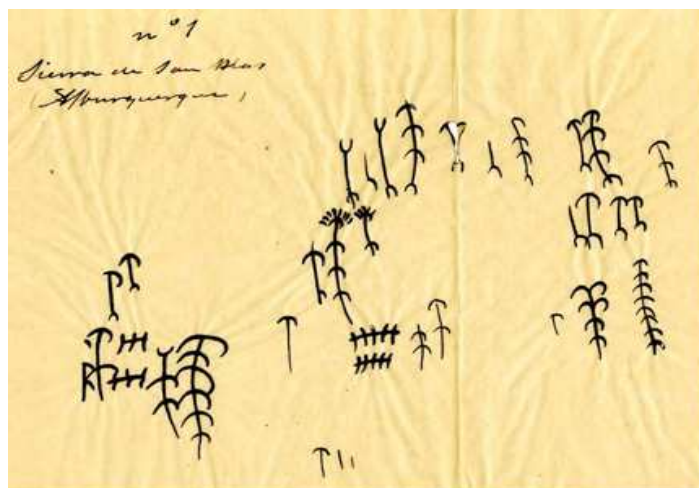 nº 1
Sierra de San Blas
(Alburquerque)